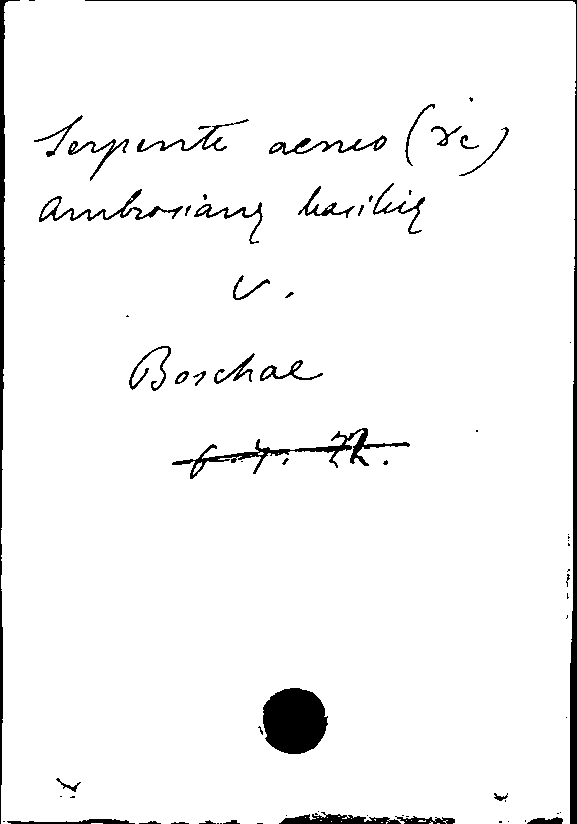 Serpente aeneo (De)
Ambrosianę basilicę
v.
Boschae
6.4.72.